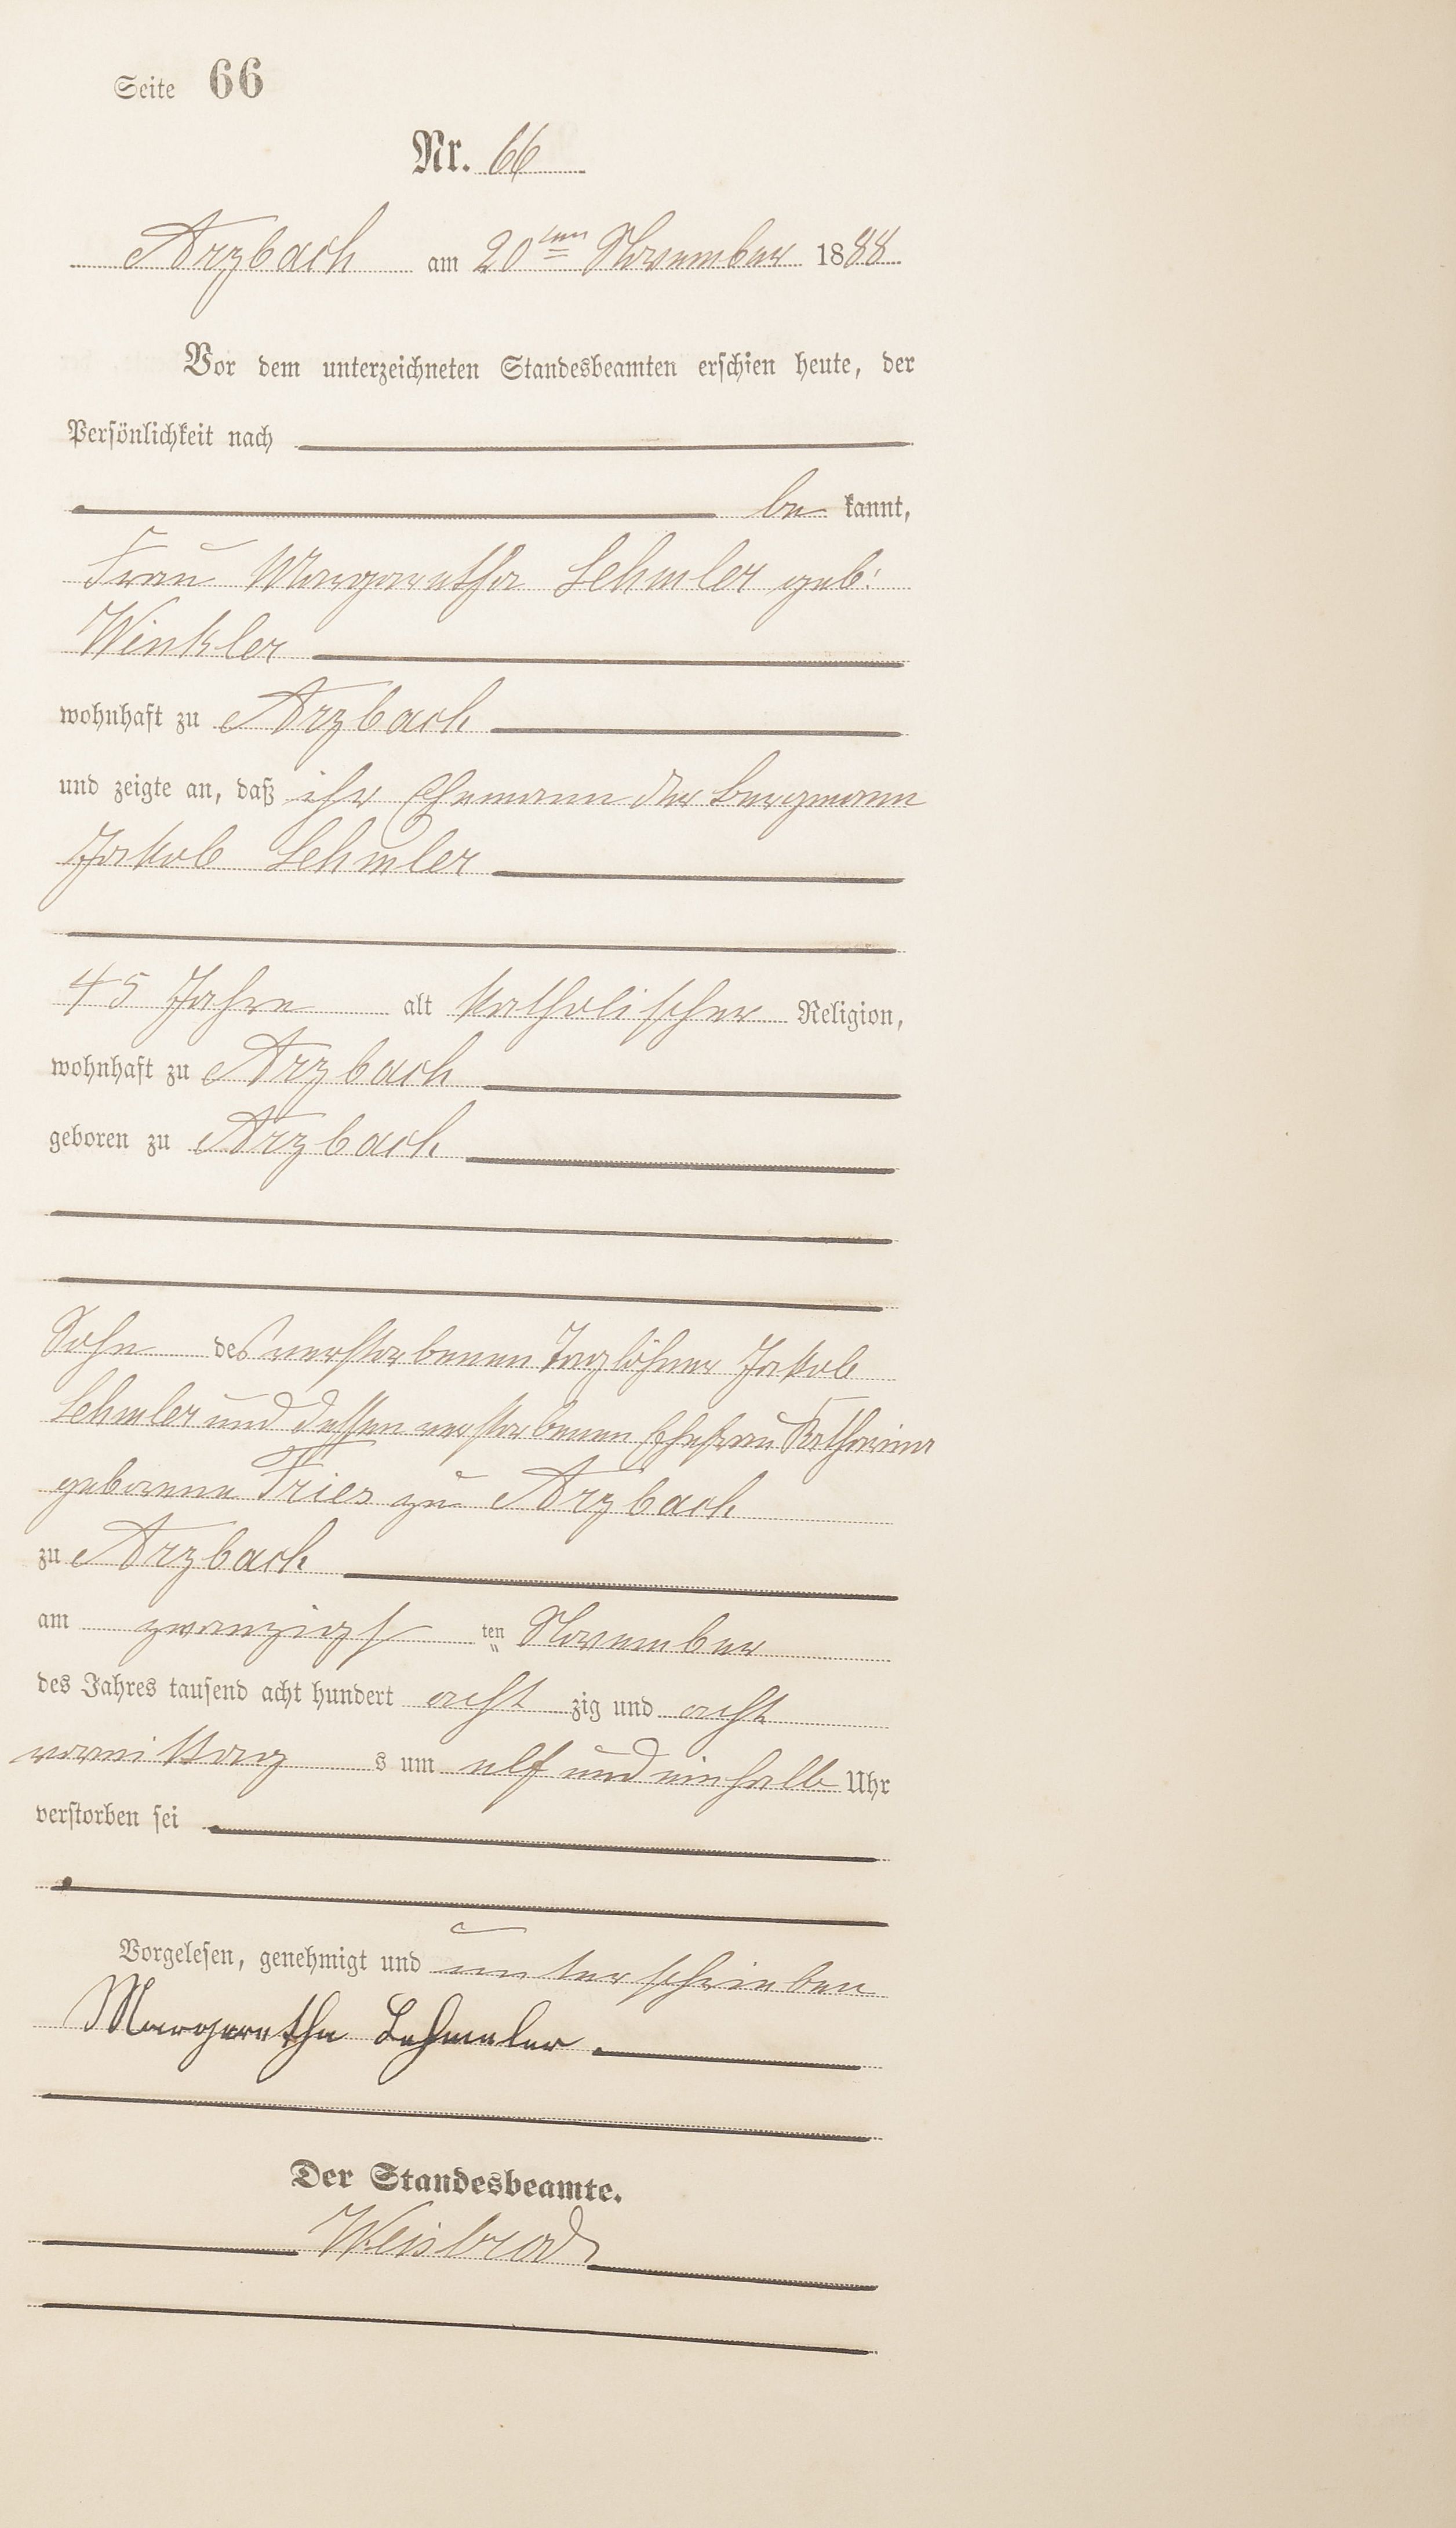 Seite 66
Nr. 66
Arzbach am 20ten November 1888
Vor dem unterzeichneten Standesbeamten erschien heute, der
Persönlichkeit nach
be kannt,
Frau Margaretha Lehmler geb:
Winkler
wohnhaft zu Arzbach
und zeigte an, daß ihr Ehemann der Bergmann
Jakob Lehmler
45 Jahre alt katholischer Religion,
wohnhaft zu Arzbach
geboren zu Arzbach
Sohn des verstorbenen Taglöhner Jakob
Lehmler und dessen verstorbenen Ehefrau Katharina
geborene Fries zu Arzbach
zu Arzbach
am zwanzigsten November
des Jahres tausend acht hundert acht zig und acht
vormittag s um elf und einhalb Uhr
verstorben sei
Vorgelesen, genehmigt und unterschrieben
Margaretha Lehmler.
Der Standesbeamte.
Weisbrod